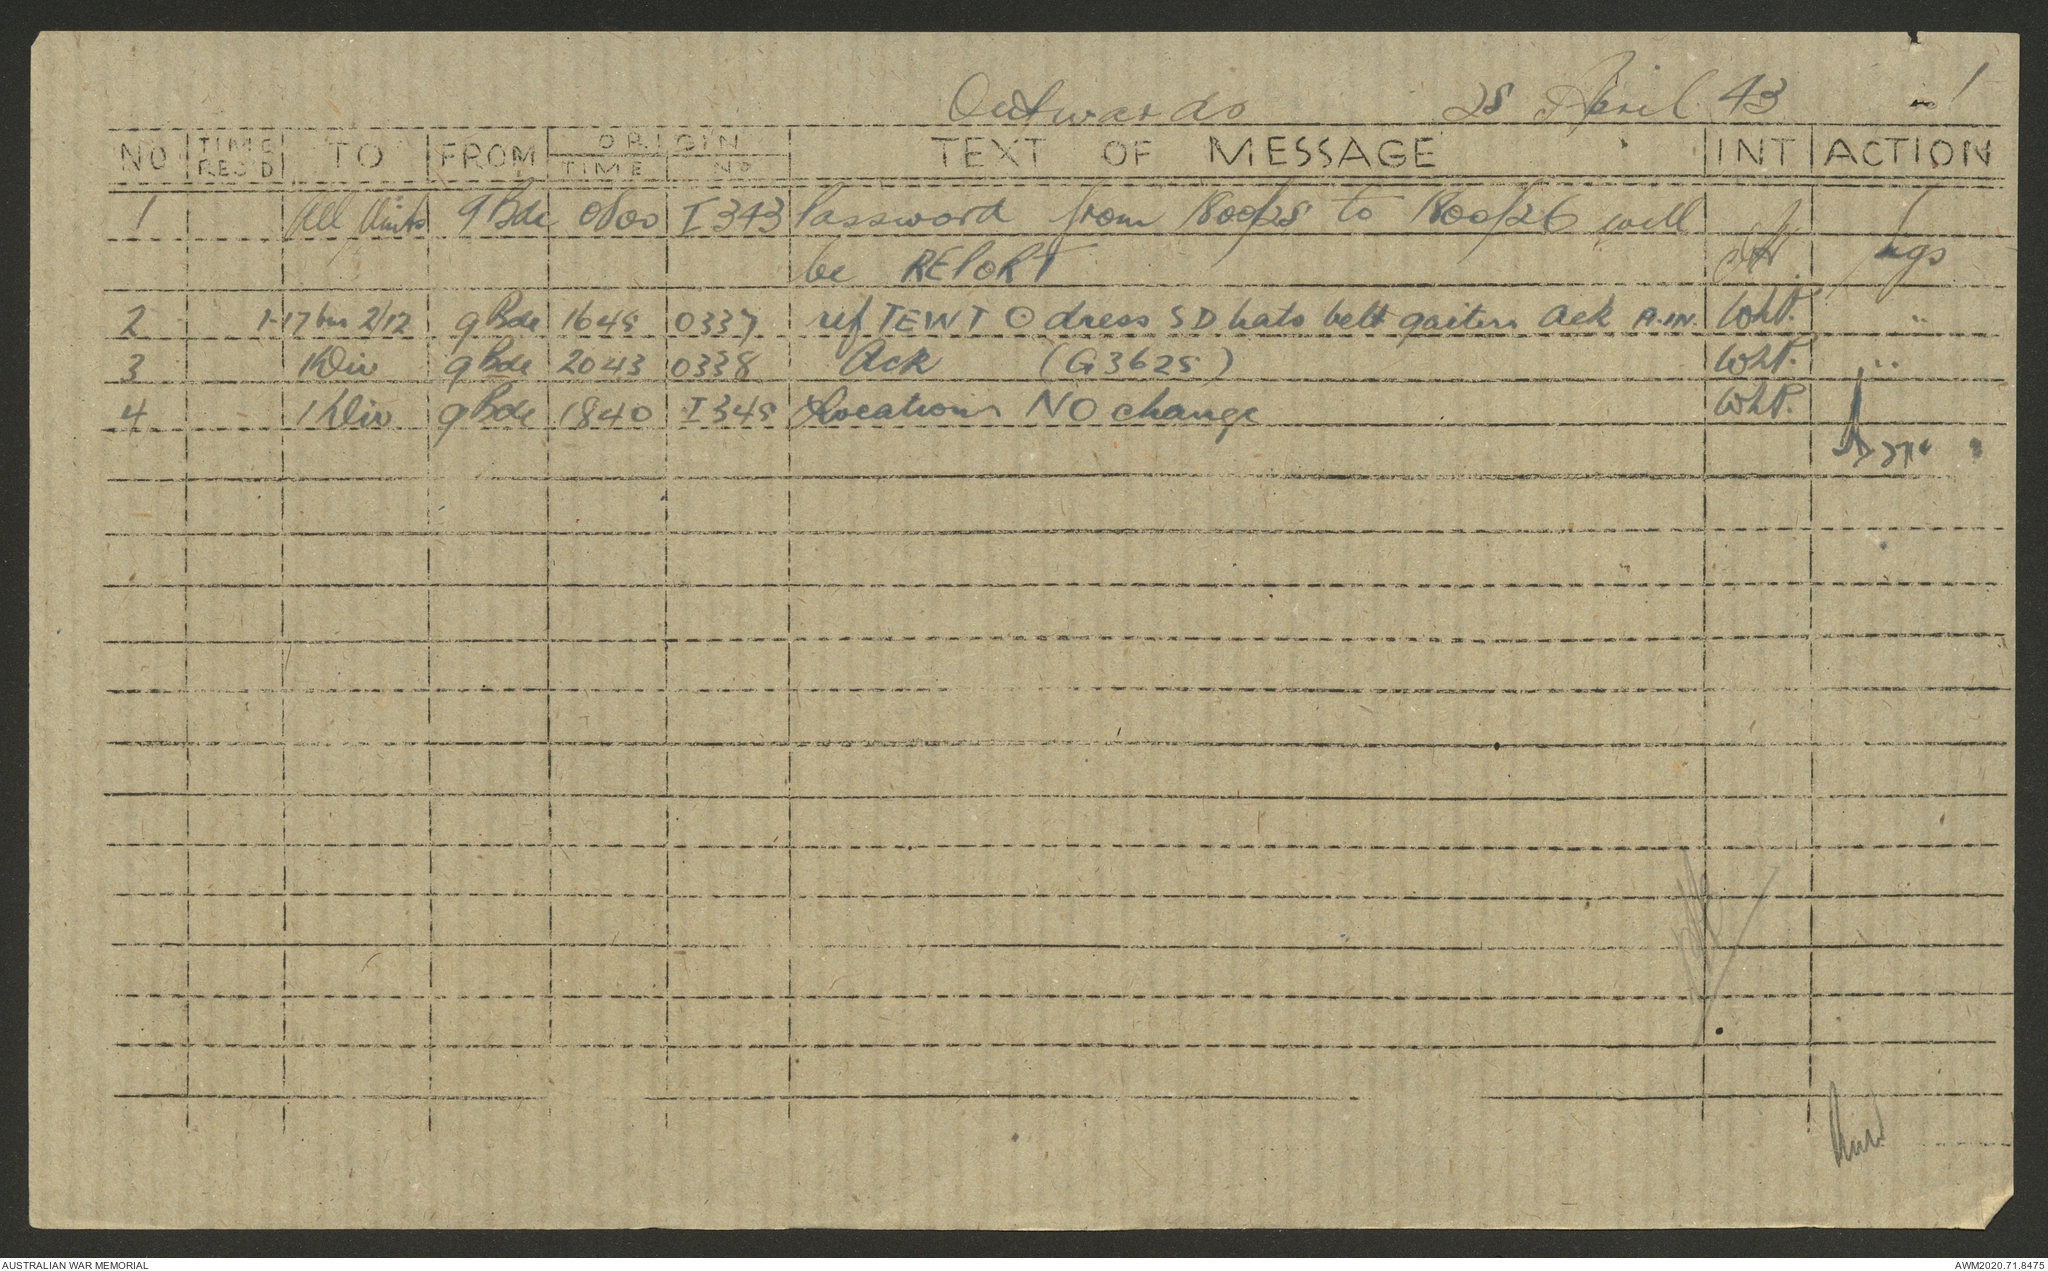 Outwards 25 April 43 1
NO TIME REC'D TO FROM ORIGIN TIME NO TEXT OF MESSAGE INT ACTION
1 All Units 9 Bde 0800 I 343 Password from 1800/25 to 1800/26 will
be REPORT Lgs
2 1-17 bn 2/12 9 Bde 1645 0337 ref TEWT ⊙ dress SD hats belt gaiters ack A.IN. WhP. "
3 1 Div 9 Bde 2043 0338 Ack (G3625) WhP. "
4 1 Div 9 Bde 1840 I 345 Locations NO change WhP.
AUSTRALIAN WAR MEMORIAL AWM2020.71.8475